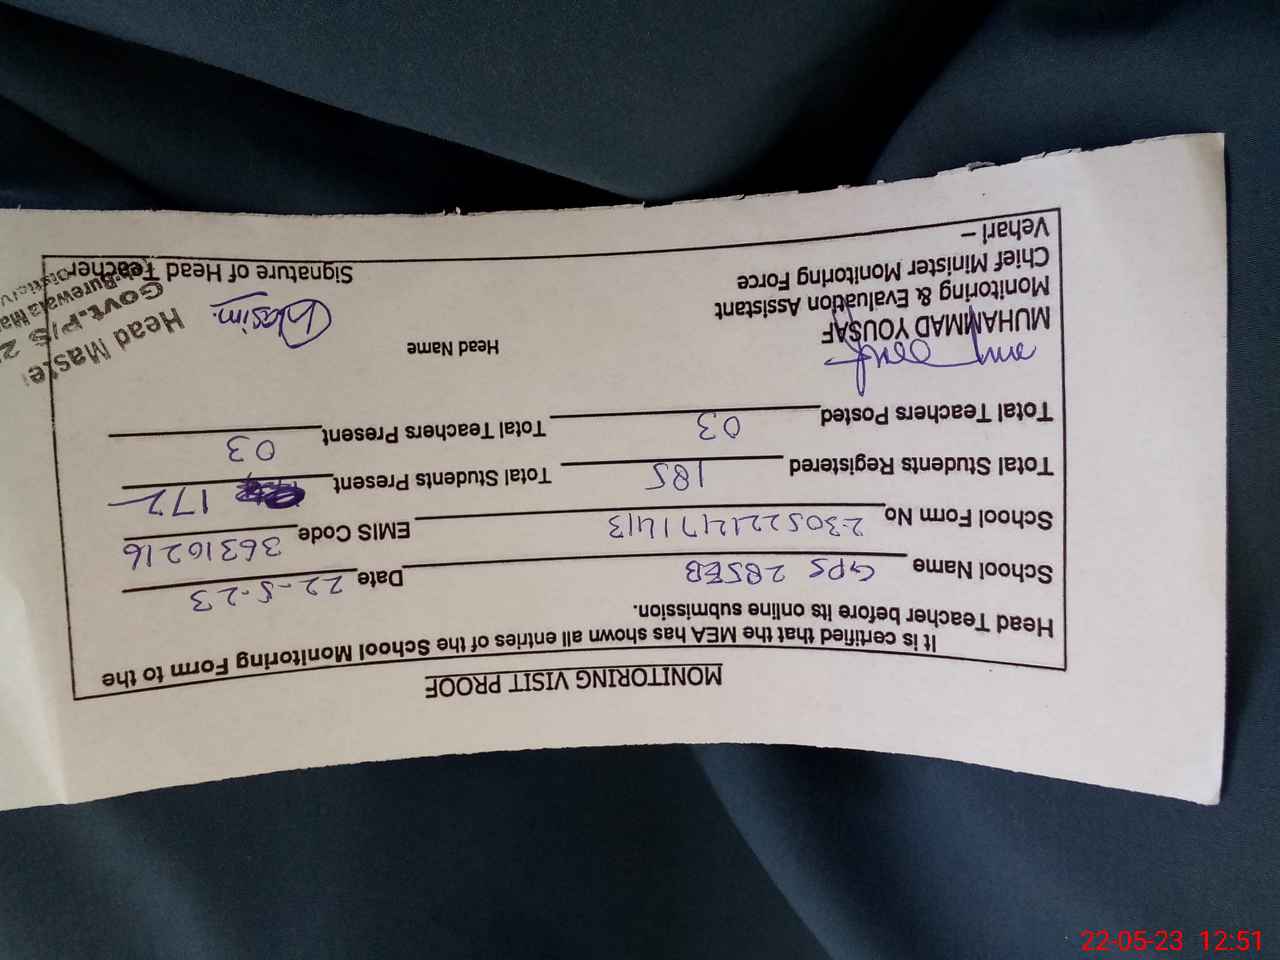 MONITORING VISIT PROOF
It is certified that the MEA has shown all entries of the School Monitoring Form to the
Head Teacher before its online submission.
School Name GPS 285EB Date 22-5-23
School Form No EMIS Code 36310216
Total Students Registered 185 Total Students Present 172
Total Teachers Posted 03 Total Teachers Present 03
MUHAMMAD YOUSAF
Monitoring & Evaluation Assistant
Chief Minister Monitoring Force
Vehari –
Head Name
Signature of Head Teacher
Head Master
Govt. P/S
Burewala
22-05-23 12:51